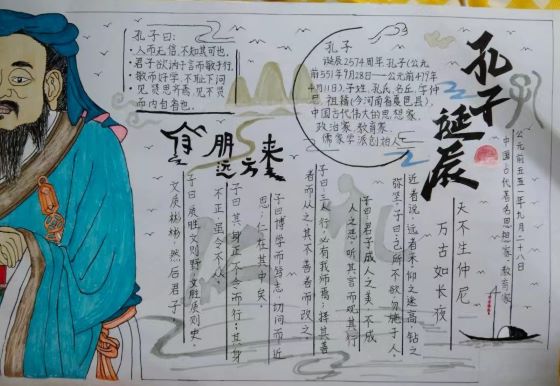 孔子曰:
·人而无信,不知其可也.
·君子欲讷于言而敏于行.
·敏而好学,不耻下问
·见贤思齐焉,见不贤
而内自省也.
孔子
诞辰2574周年孔子(公元
前551年9月28日——公元前479年
4月11日),子姓,孔氏,名丘,字仲
尼,祖籍(今河南省夏邑县),
中国古代伟大的思想家,
政治家,教育家,
儒家学派创始人
孔子诞辰
公元前五五一年九月二十八日
中国古代著名思想家、教育家
天不生仲尼
万古如长夜
朋
远方来
近者说,远者来仰之弥高,钻之
弥坚,子曰:己所不欲勿施于人
子曰:君子成人之美,不成
人之恶,听其言而观其行
子曰:三人行,必有我师焉;择其善
者而从之,其不善者而改之.
子曰博学而笃志,切问而近
思,仁在其中矣.
子曰:其身正,不令而行;其身
不正,虽令不从.
子曰:质胜文则野,文胜质则史
文质彬彬,然后君子